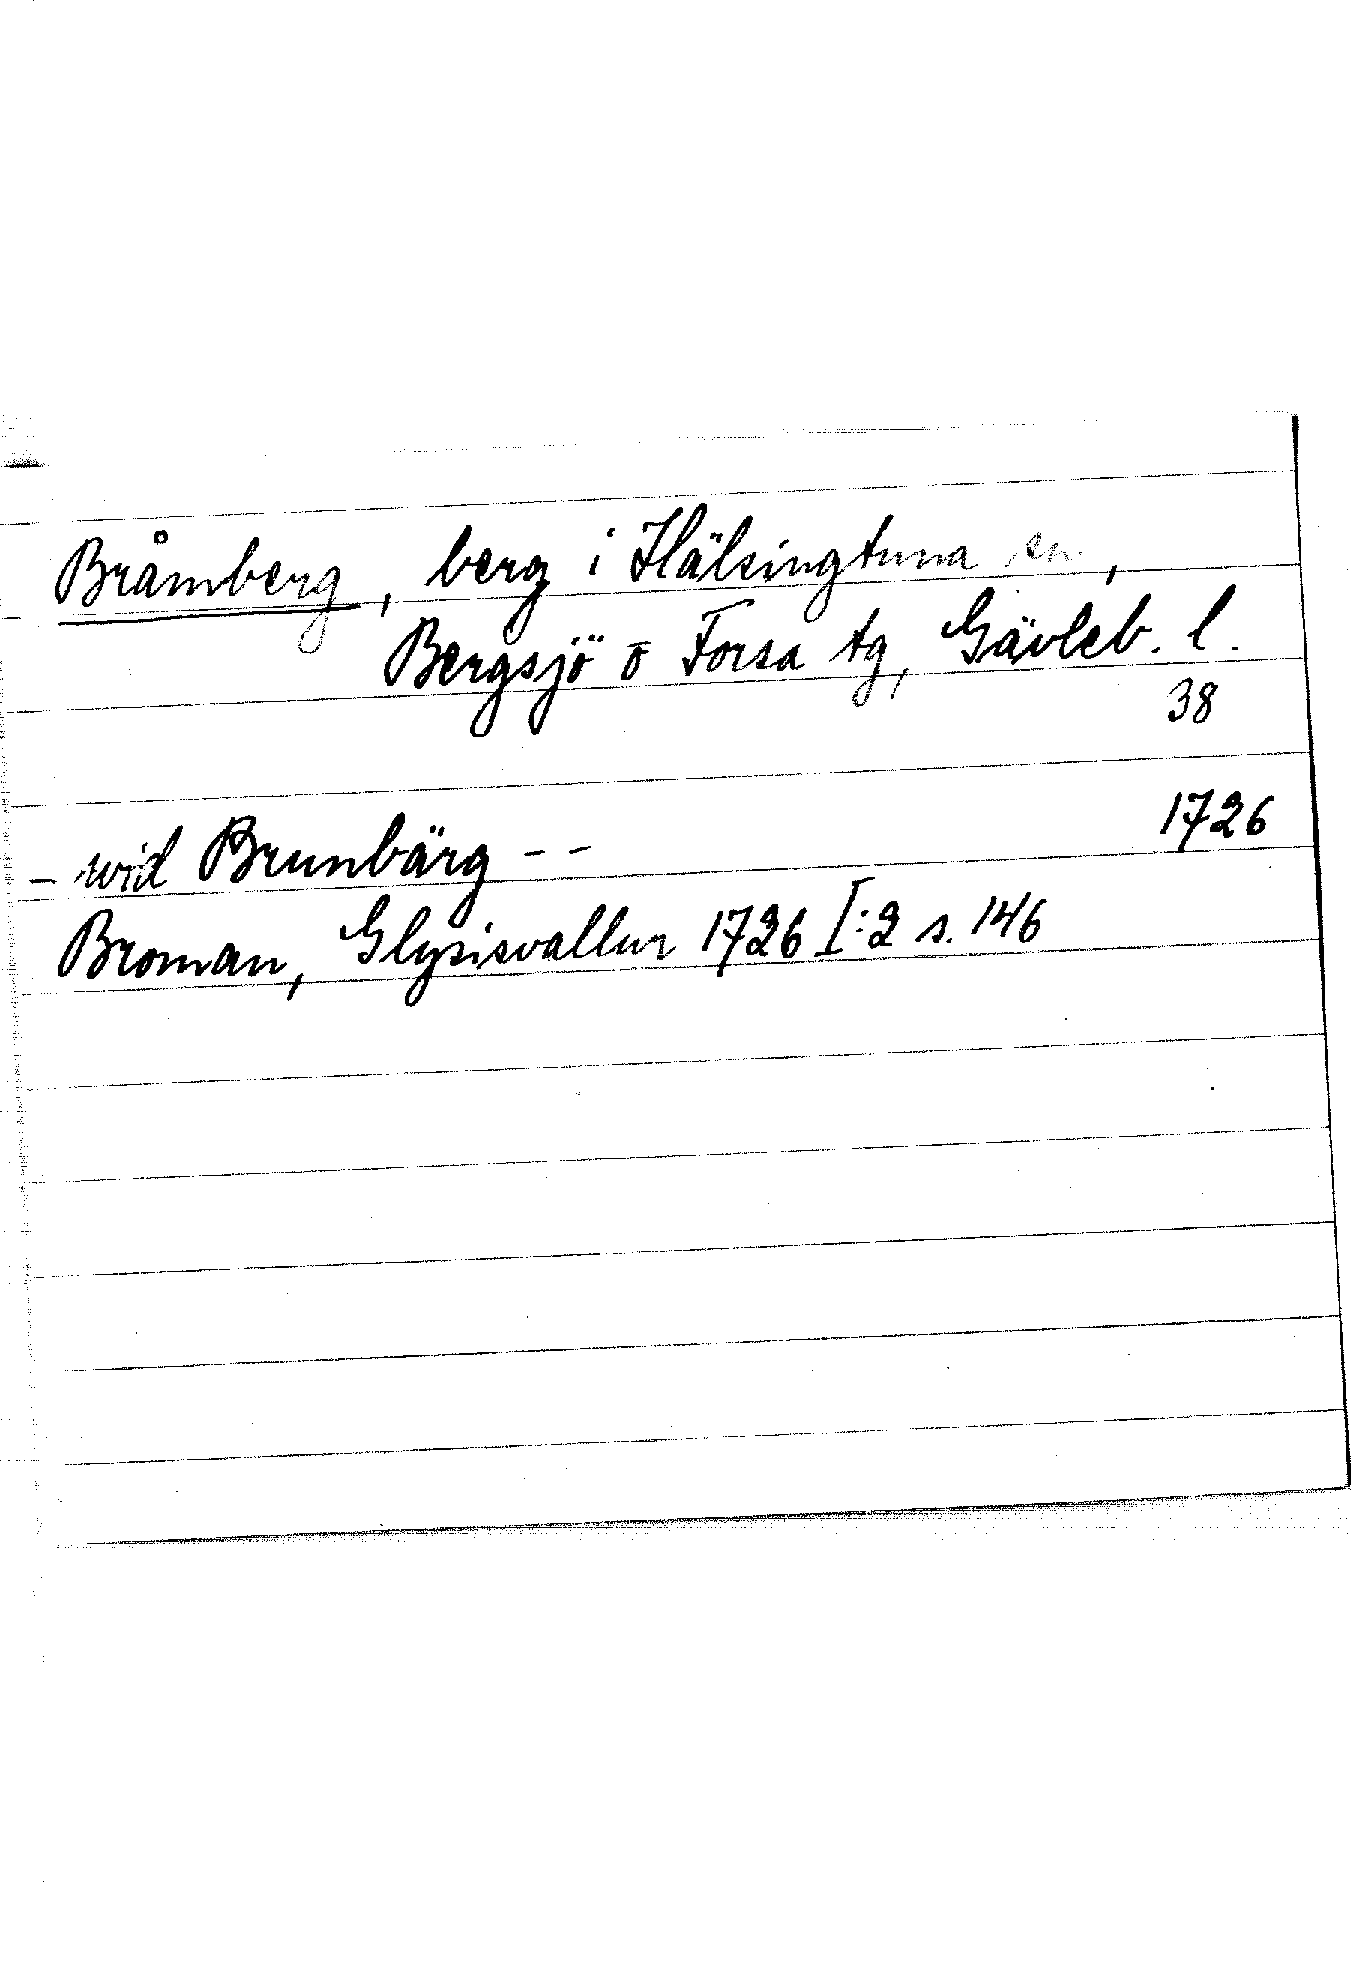 Bråmberg, berg i Hälsingtuna sn,
Bergsjö o Forsa tg, Gävleb. l.
38
1726
- wid Brunbärg - -
Broman, Glysisvallur 1726 I:2 s. 146